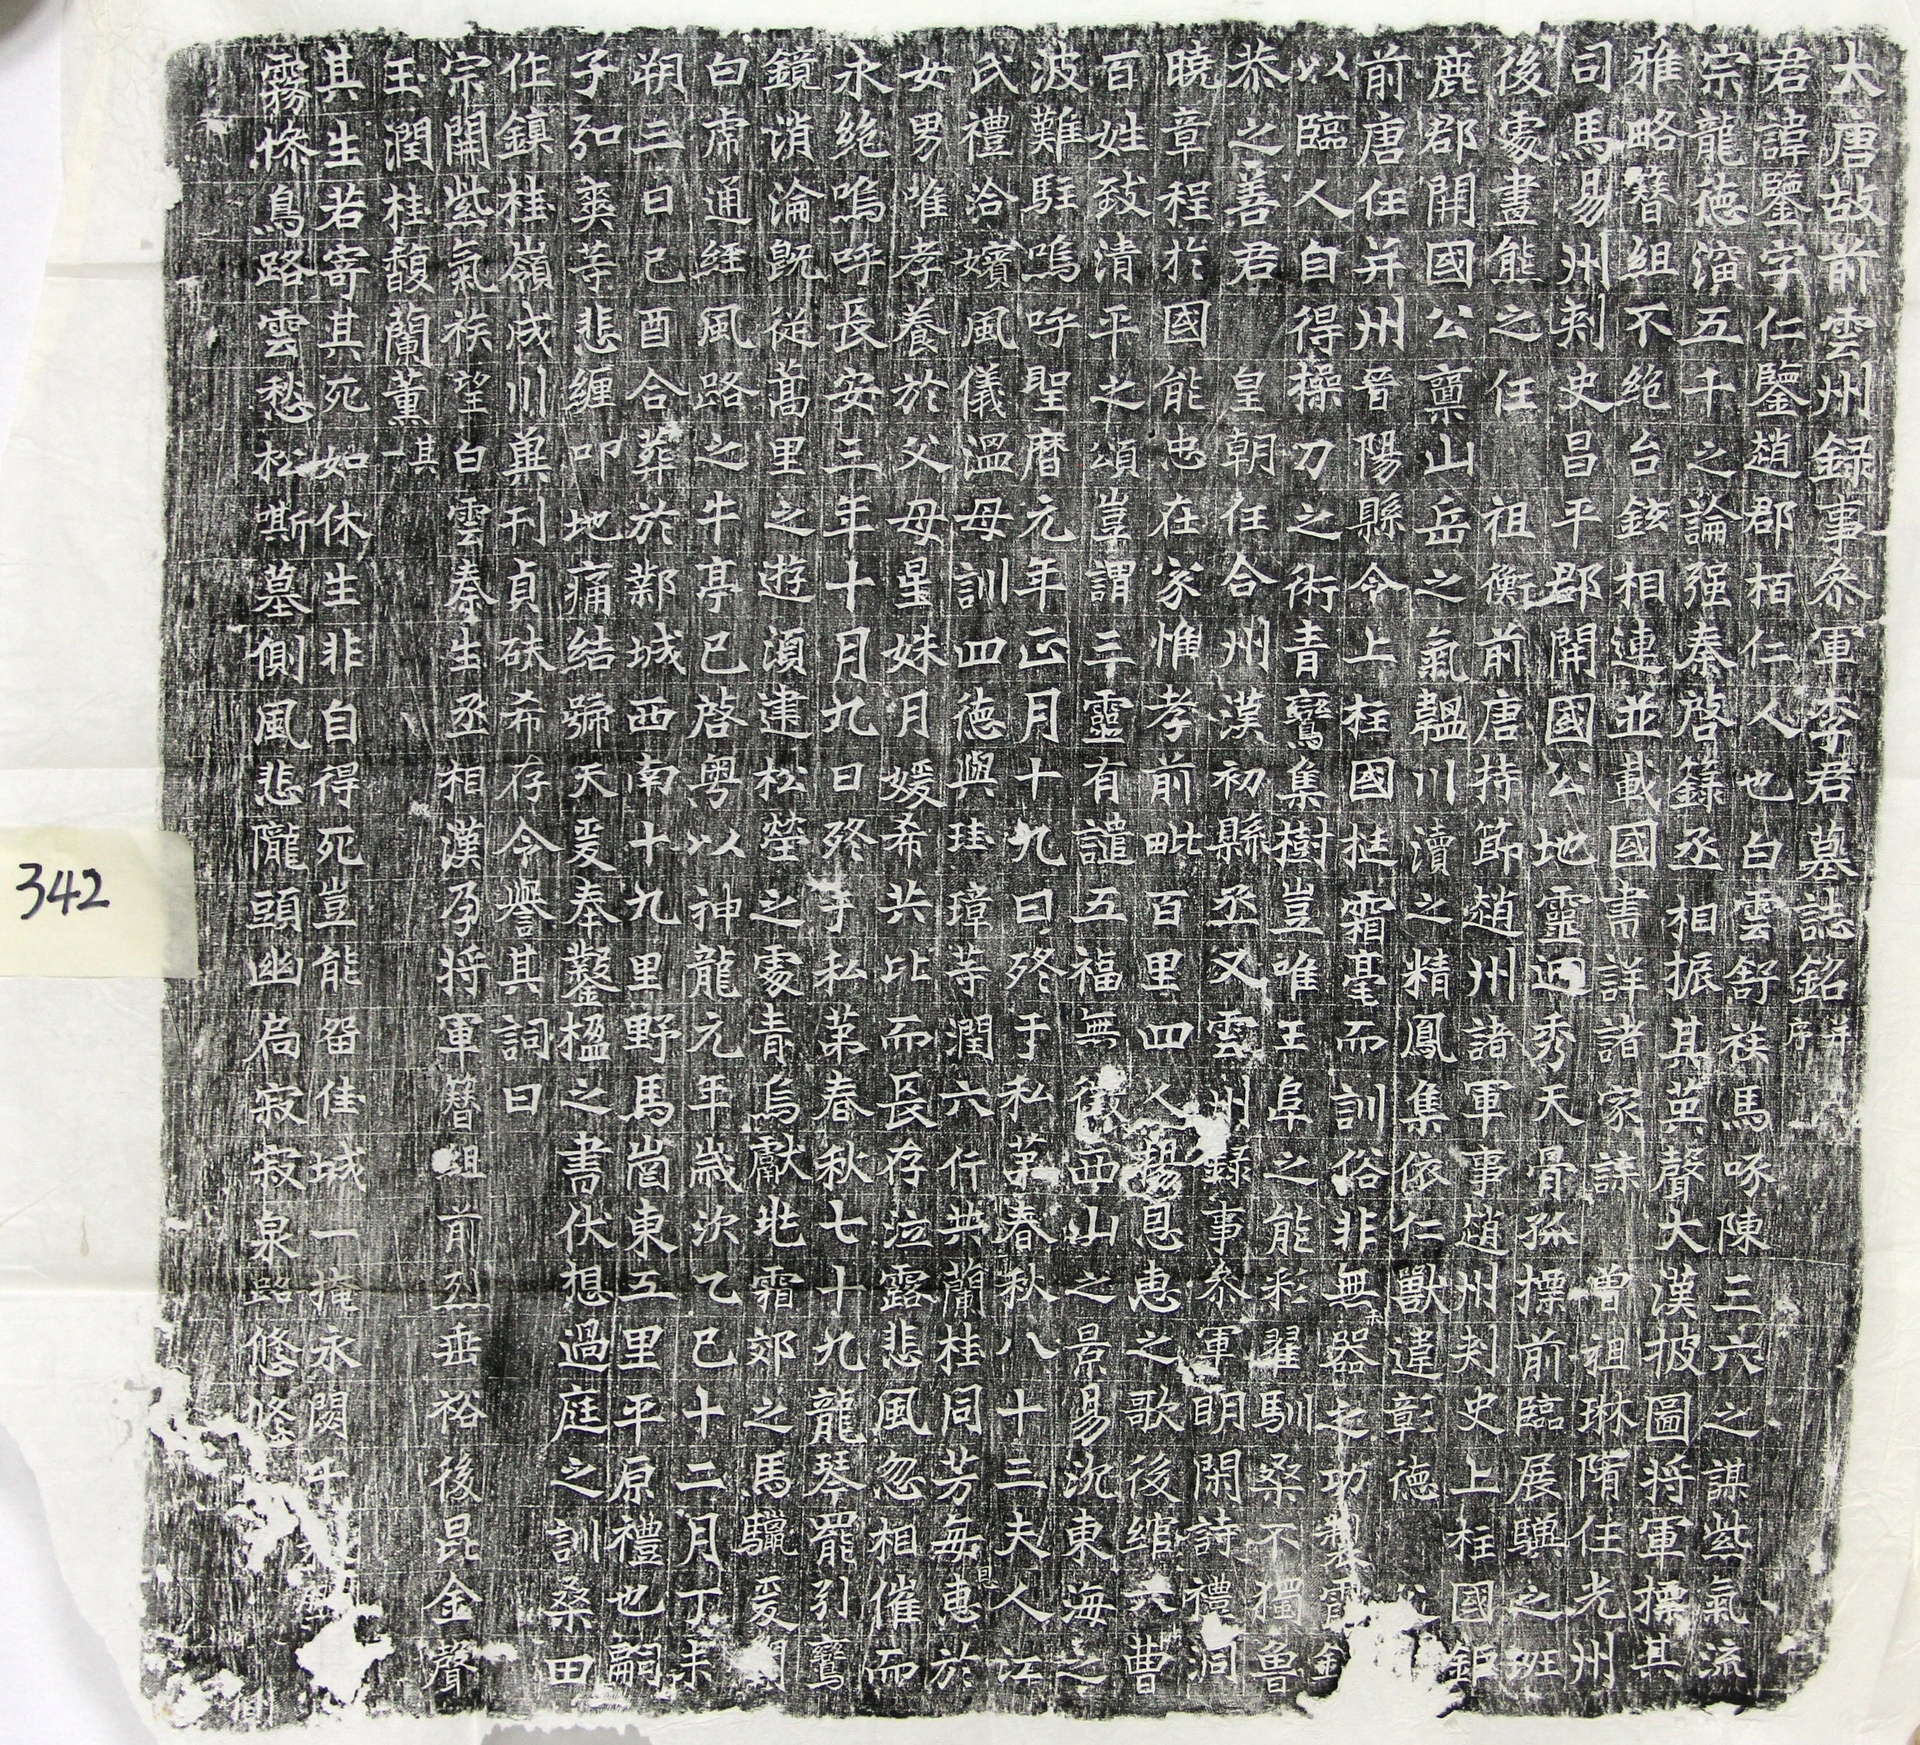 大唐故前雲州録事參軍李君墓誌銘并序
君諱鑒字仁鑒趙郡栢仁人也白雲舒族馬啄陳三六之謀紫氣流
宗龍德演五千之論强秦啓籙丞相振其英聲大漢披圖将軍標其
雅略簪組不絶台鉉相連並載國書詳諸家諜曾祖琳隋任光州
司馬易州刾史昌平郡開國公地靈迥秀天骨孤標前臨展驥之班
後處畫熊之任祖衡前唐持節趙州諸軍事趙州刾史上柱國鉅
鹿郡開國公稟山岳之氣韞川瀆之精鳳集依仁獸違彰德
前唐任并州晉陽縣令上柱國挺霜毫而訓俗非無不器之功製
以臨人自得操刀之術青鸞集樹豈唯王阜之能彩翟馴桑不獨魯
恭之善君皇朝任合州漢初縣丞又雲州録事參軍明閑詩禮洞
曉章程於國能忠在家惟孝前毗百里四人揚恩惠之歌後綰六曹
百姓致清平之頌豈謂三靈有譴五福無徵西山之景易沉東海之
波難駐嗚呼聖曆元年正月十九日終于私苐春秋八十三夫人江
氏禮洽嬪風儀溫母訓四德與珪璋等潤六行共蘭桂同芳每恵恩於
女男唯孝養於父母星姝月媛希共比而長存泣露悲風忽相催而
永絶嗚呼長安三年十月九日終于私苐春秋七十九龍琴罷引鸞
鏡消淪既從蒿里之遊須建松塋之處青烏獻兆霜郊之馬驪爰開
白帝通經風路之牛亭已啓粤以神龍元年歲次乙巳十二月丁未
朔三日己酉合葬於鄴城西南十九里野馬崗東五里平原禮也嗣
子弘奕等悲纏叩地痛結號天爰奉鑿楹之書伏想過庭之訓桑田
作鎮桂嶺成川冀刊貞砆希存令譽其詞曰
宗開紫氣族望白雲秦生丞相漢孕将軍簪組前烈垂裕後昆金聲
玉潤桂馥蘭薰其一
其生若寄其死如休生非自得死豈能留佳城一掩永閟千
霧慘鳥路雲愁松嘶墓側風悲隴頭幽扃寂寂泉路悠悠